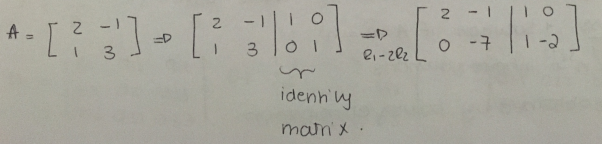 A = [ 2 -1 ; 1 3 ] => [ 2 -1 | 1 0 ; 1 3 | 0 1 ] => R1-2R2 [ 2 -1 | 1 0 ; 0 -7 | 1 -2 ]
identity
matrix.